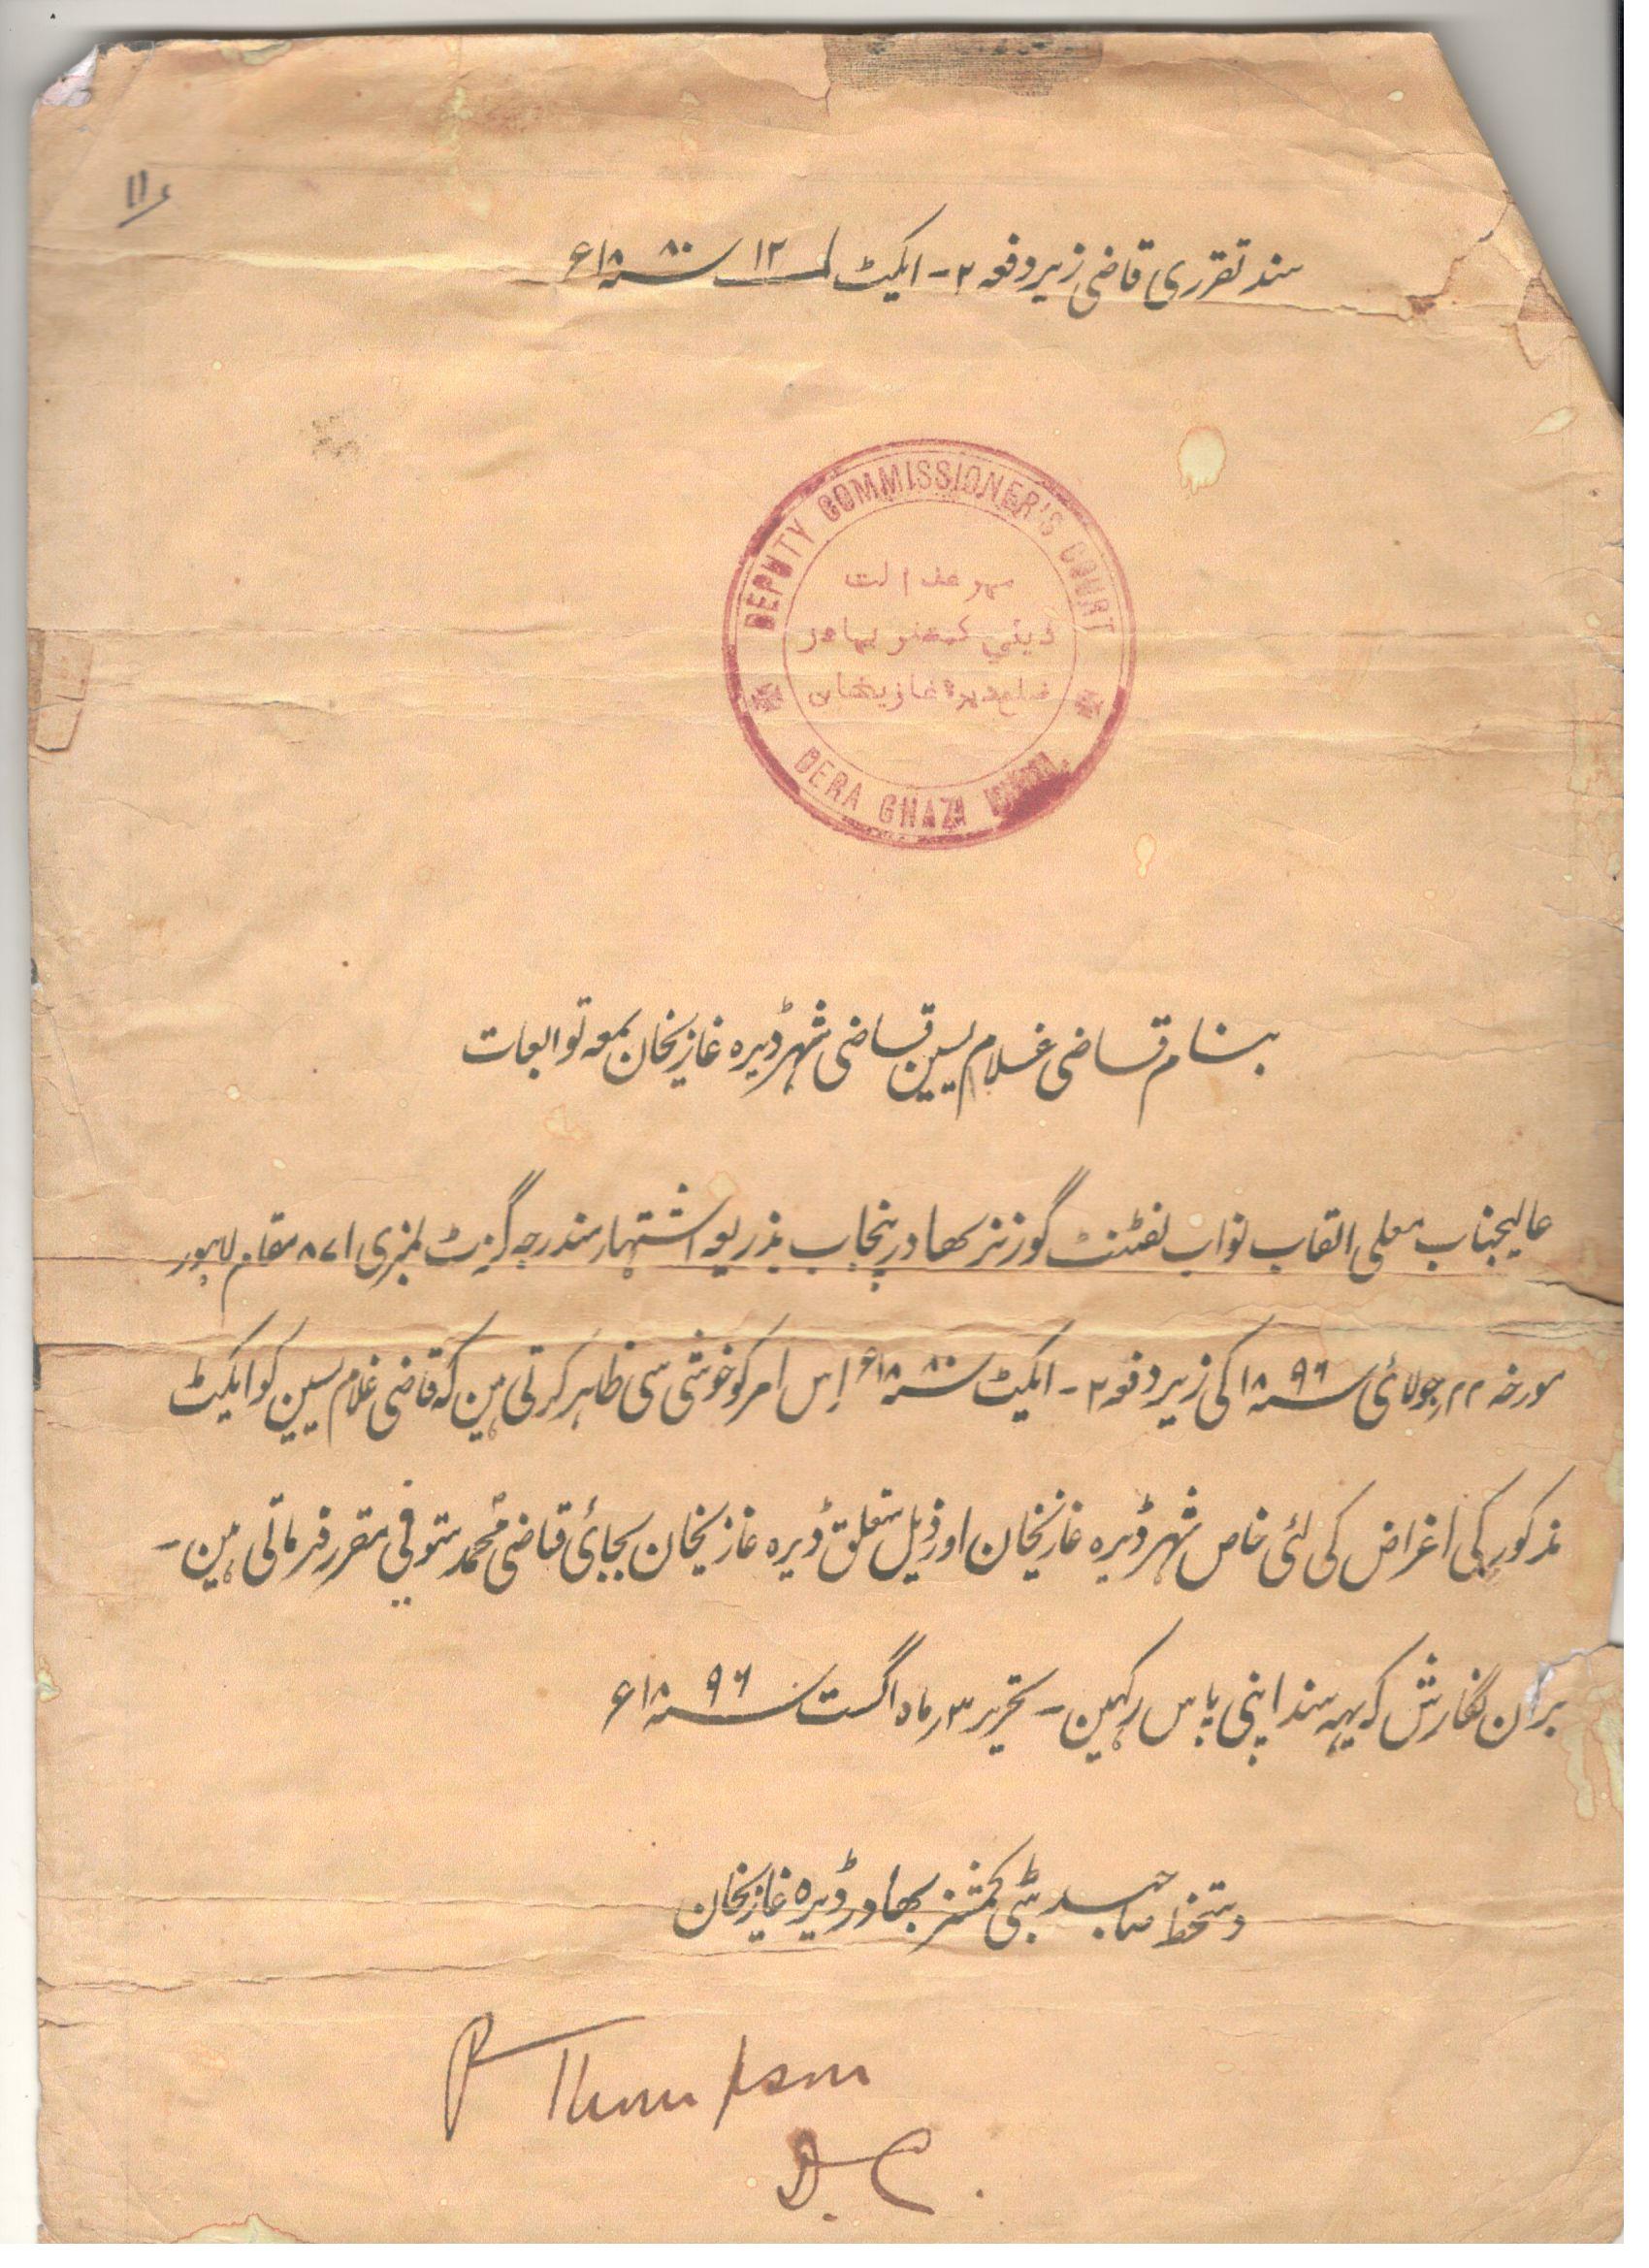 ۱۱ء
سند تقرری قاضی زیر دفعہ ۲- ایکٹ ۱۲ سنہ ۱۸۸۰ء
DEPUTY COMMISSIONER'S COURT
مہر عدالت
ڈپٹی کمشنر بہادر
ضلع دیرہ غازیخان
DERA GHAZI KHAN.
بنام قاضی غلام یسین قاضی شہر ڈیرہ غازیخان بمعہ توابعات
عالیجناب معلی القاب نواب لفٹنٹ گورنر بھادر پنجاب بذریعہ اشتہار مندرجہ گزٹ نمبری ۸۷۱ مقام لاہور
مورخہ ۲۲؍ جولائی سنہ ۱۸۹۶ کی زیر دفعہ ۲- ایکٹ سنہ ۱۸۸۰ء اِس امر کو خوشی سی ظاہر کرتی ہین کہ قاضی غلام یسین کو ایکٹ
مذکور کی اغراض کی لئی خاص شہر ڈیرہ غازیخان اور ذیل متعلق ڈیرہ غازیخان بجائی قاضی محمد متوفی مقرر فرماتی ہین-
بران نگارش کہ یہہ سند اپنی پاس رکہین- تحریر ۳؍ ماہ اگست سنہ ۱۸۹۶ء
دستخط صاحب ڈپٹی کمشنر بھادر ڈیرہ غازیخان
P Thompson
D.C.